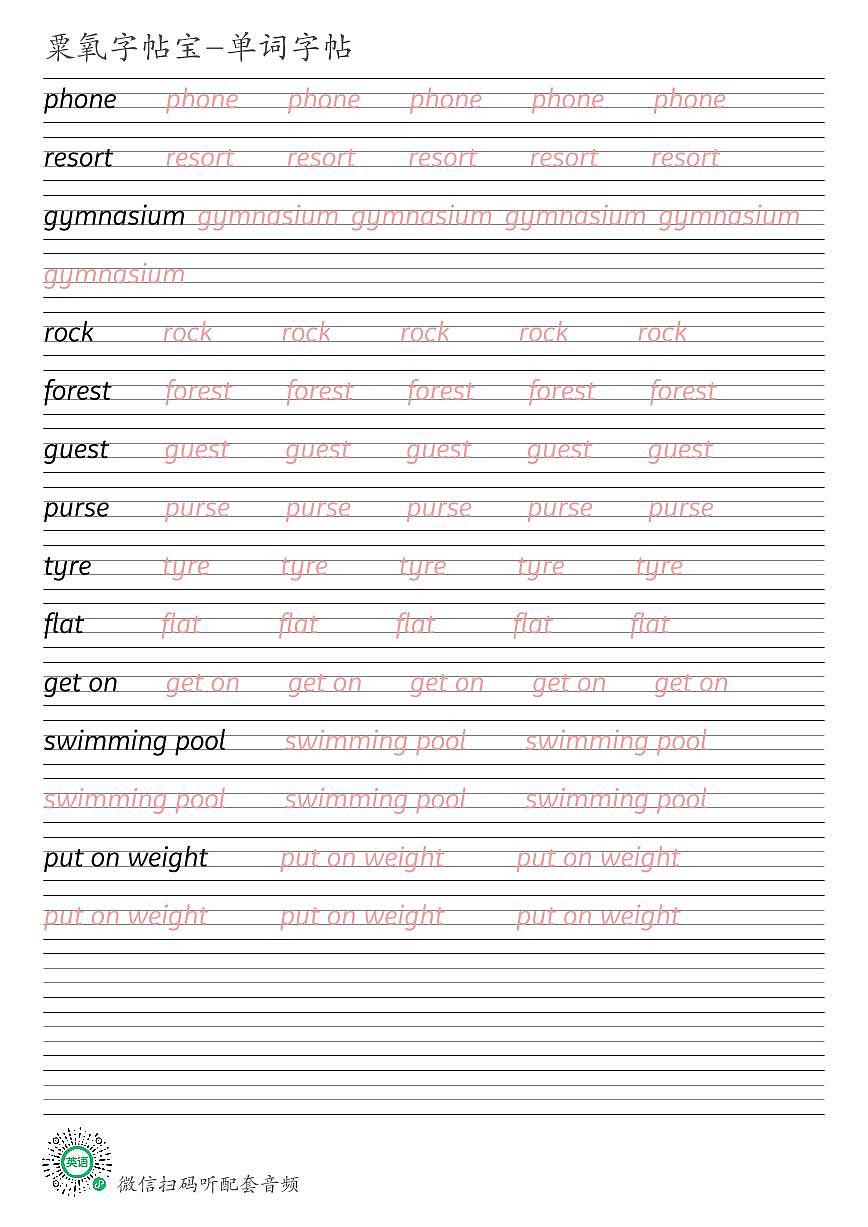 粟氧字帖宝-单词字帖
phone phone phone phone phone phone
resort resort resort resort resort resort
gymnasium gymnasium gymnasium gymnasium gymnasium
gymnasium
rock rock rock rock rock rock
forest forest forest forest forest forest
guest guest guest guest guest guest
purse purse purse purse purse purse
tyre tyre tyre tyre tyre tyre
flat flat flat flat flat flat
get on get on get on get on get on get on
swimming pool swimming pool swimming pool
swimming pool swimming pool swimming pool
put on weight put on weight put on weight
put on weight put on weight put on weight
英语
微信扫码听配套音频